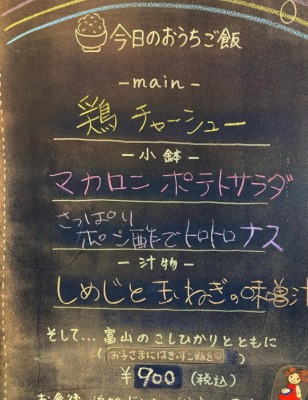 今日のおうちご飯
-main-
鶏 チャーシュー
-小鉢-
マカロニ ポテトサラダ
さっぱり
ポン酢でトロトロナス
-汁物-
しめじと玉ねぎの味噌汁
そして... 富山のこしひかりとともに
¥900 (税込)